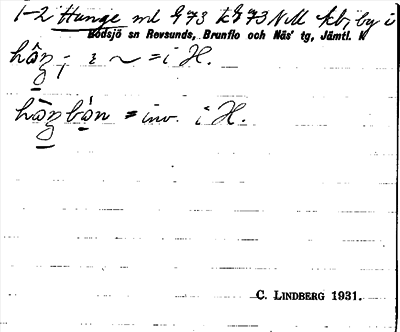 1-2 Hunge ml G73 kG73NM kb, by i
Bodsjö sn Revsunds, Brunflo och Näs' tg, Jämtl. l.
i ~ = i H.
= inv. i H.
C. LINDBERG 1931.